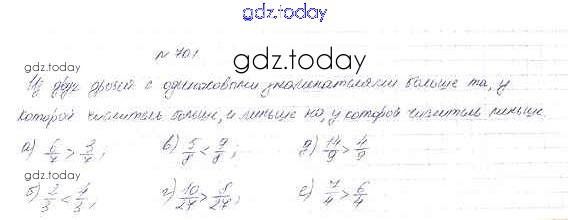 gdz.today
№ 701.
gdz.today
gdz.today
Из двух дробей с одинаковыми знаменателями больше та, у
которой числитель больше, и меньше та, у которой числитель меньше.
а) 6/7 > 3/7; в) 5/8 < 9/8; д) 14/9 > 4/9
gdz.today
б) 2/3 < 4/3; г) 10/27 > 8/27; е) 7/4 > 6/4